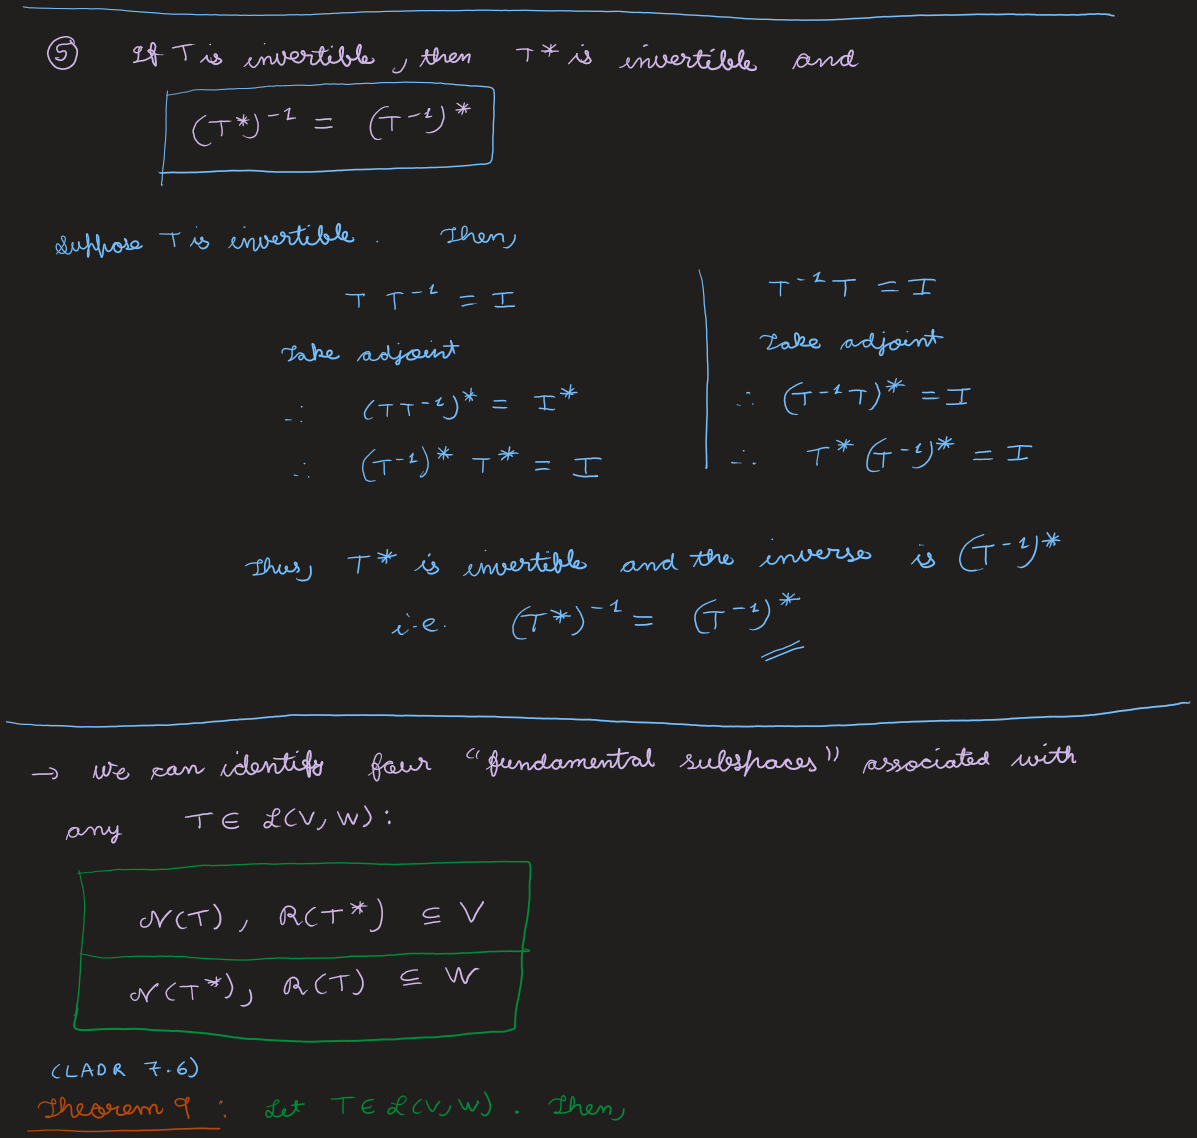 ⑤ If T is invertible, then T* is invertible and
(T*)⁻¹ = (T⁻¹)*
Suppose T is invertible. Then,
T T⁻¹ = I
Take adjoint
∴ (TT⁻¹)* = I*
∴ (T⁻¹)* T* = I
T⁻¹T = I
Take adjoint
∴ (T⁻¹T)* = I
∴ T* (T⁻¹)* = I
Thus, T* is invertible and the inverse is (T⁻¹)*
i.e. (T*)⁻¹ = (T⁻¹)*
→ We can identify four "fundamental subspaces" associated with
any T ∈ ℒ(V, W):
𝒩(T), ℛ(T*) ⊆ V
𝒩(T*), ℛ(T) ⊆ W
(LADR 7.6)
Theorem 9 : Let T ∈ ℒ(V, W). Then,